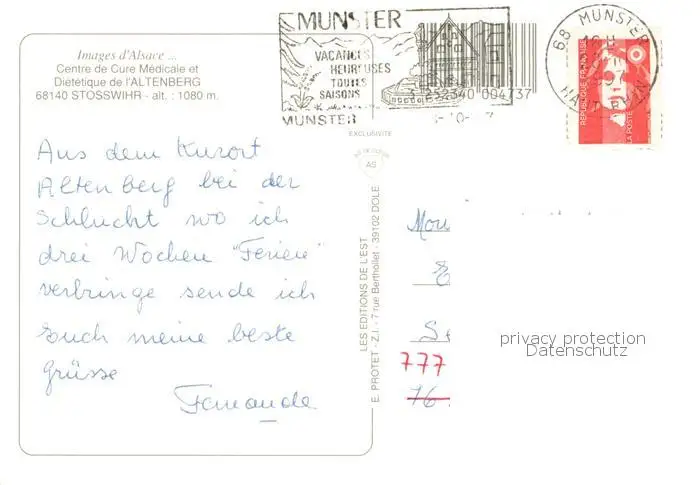 Images d'Alsace ...
Centre de Cure Médicale et
Diététique de l'ALTENBERG
68140 STOSSWIHR - alt. : 1080 m.
Aus dem Kurort
Altenberg bei der
Schlucht wo ich
drei Wochen "Ferien"
verbringe sende ich
Euch meine beste
Grüsse
Fernande
MUNSTER
VACANCES
HEUREUSES
TOUTES
SAISONS
MUNSTER
3 252340 004737
EXCLUSIVITÉ
AS
LES EDITIONS DE L'EST
E. PROTET - Z.I. - 7 rue Berthollet - 39102 DOLE
68 MUNSTER
HAUT-RHIN
REPUBLIQUE FRANÇAISE
LA POSTE
777
16
privacy protection
Datenschutz